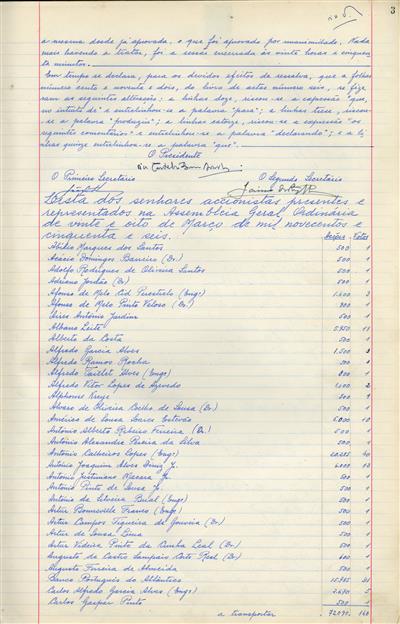 3
a mesma desde já aprovada, o que foi aprovado por unanimidade. Nada
mais havendo a tratar, foi a sessão encerrada às vinte horas e cinquen-
ta minutos.
Em tempo se declara, para os devidos efeitos de ressalva, que a folhas
número cento e noventa e dois, do livro de actas número seis, se fize-
ram as seguintes alterações: a linhas doze, riscou-se a expressão "que,
no intuito de" e entrelinhou-se a palavra "para"; a linhas treze, riscou-
se a palavra "produziu"; a linhas catorze, riscou-se a expressão "os
seguintes comentários" e entrelinhou-se a palavra "declarando"; e a li-
nhas quinze entrelinhou-se a palavra "que".
O Presidente
O Primeiro Secretário O Segundo Secretário
Lista dos senhores accionistas presentes e
representados na Assembleia Geral Ordinária
de vinte e oito de Março de mil novecentos e
cinquenta e seis. Acções Votos
Abílio Marques dos Santos 500 1
Acácio Domingos Barreiro (Dr.) 500 1
Adolfo Rodrigues de Oliveira Santos 500 1
Adriano Jordão (Dr.) 500 1
Afonso de Melo Cid Perestrelo (Engº) 1.600 3
Afonso de Melo Pinto Veloso (Dr.) 1
Aires António Jardim 500 1
Albano Leite 5.950 11
Alberto da Costa 500 1
Alfredo Garcia Alves 1.500 3
Alfredo Ramos Rocha 500 1
Alfredo Alves (Engº) 1
Alfredo Vitor Lopes de Azevedo 2
Alphonse 500 1
Alvaro de Oliveira Coelho de Sousa (Dr) 500 1
Américo de Sousa Soares Estevão
António Alberto Ribeiro Ferreira (Dr.) 500 1
António Alexandre Pereira da Silva 500 1
António Calheiros Lopes (Engº) 40
António Joaquim Alves Diniz Jr.
António Justiniano 500 1
António Pinto de Sousa Jr. 500 1
António da Silveira (Engº) 500 1
Artur Bonneville Franco (Engº) 500 1
Artur Campos Figueira de Gouveia (Dr) 500 1
Artur de Sousa Lima 500 1
Artur Videira Pinto da Cunha Leal (Dr.) 500 1
Augusto da Castro Sampaio Corte Real (Dr) 1
Augusto Ferreira de Almeida 500 1
Banco Português do Atlântico
Carlos Alfredo Garcia Alves (Engº) 5
Carlos Gaspar Pinto 500 1
a transportar